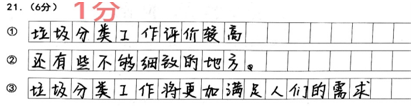 21. (6分) 1分
① 垃圾分类工作评价较高
② 还有些不够细致的地方。
③ 垃圾分类工作将更加满足人们的需求